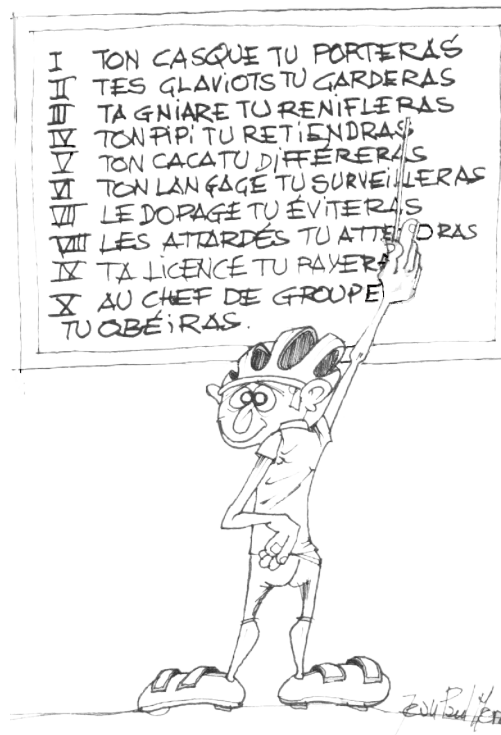 I TON CASQUE TU PORTERAS
II TES GLAVIOTS TU GARDERAS
III TA GNIARE TU RENIFLERAS
IV TON PIPI TU RETIENDRAS
V TON CACA TU DIFFÉRERAS
VI TON LANGAGE TU SURVEILLERAS
VII LE DOPAGE TU ÉVITERAS
VIII LES ATTARDÉS TU ATTE DRAS
IX TA LICENCE TU PAYERA
X AU CHEF DE GROUPE
TU OBÉIRAS.